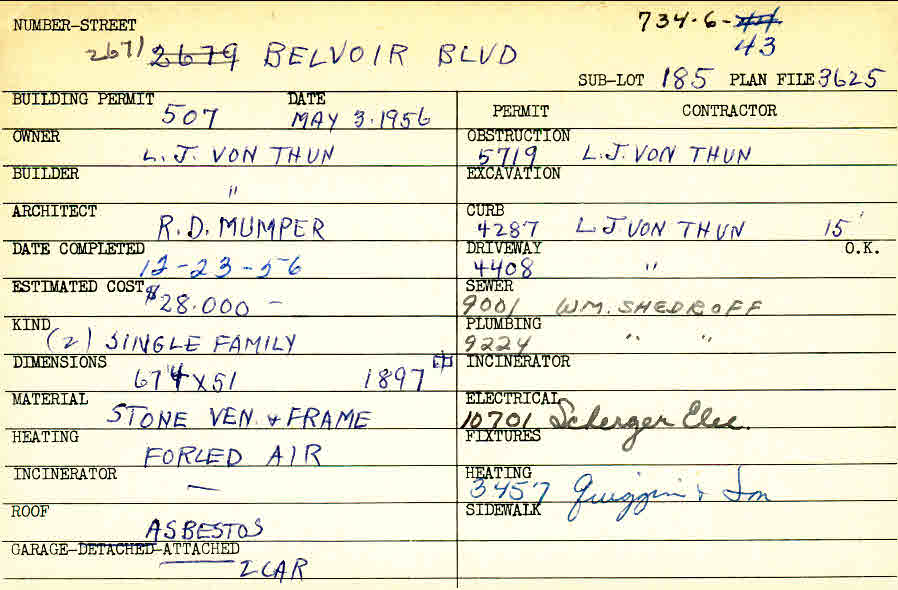 NUMBER-STREET 734-6-44
2671 2679 BELVOIR BLVD 43
SUB-LOT 185 PLAN FILE 3625
BUILDING PERMIT 507 DATE MAY 3.1956
PERMIT CONTRACTOR
OWNER L. J. VON THUN
OBSTRUCTION 5719 L.J. VON THUN
BUILDER "
EXCAVATION
ARCHITECT R.D. MUMPER
CURB 4287 L J VON THUN 15'
DATE COMPLETED 12-23-56
DRIVEWAY 4408 " O.K.
ESTIMATED COST $28.000 -
SEWER 9001 WM. SHEDROFF
KIND (2) SINGLE FAMILY
PLUMBING 9224 " "
DIMENSIONS 67'4 X 51 1897
INCINERATOR
MATERIAL STONE VEN. & FRAME
ELECTRICAL 10701 Scherger Elec.
HEATING FORCED AIR
FIXTURES
INCINERATOR —
HEATING 3457 Quiggin & Son
ROOF ASBESTOS
SIDEWALK
GARAGE-DETACHED-ATTACHED
2 CAR